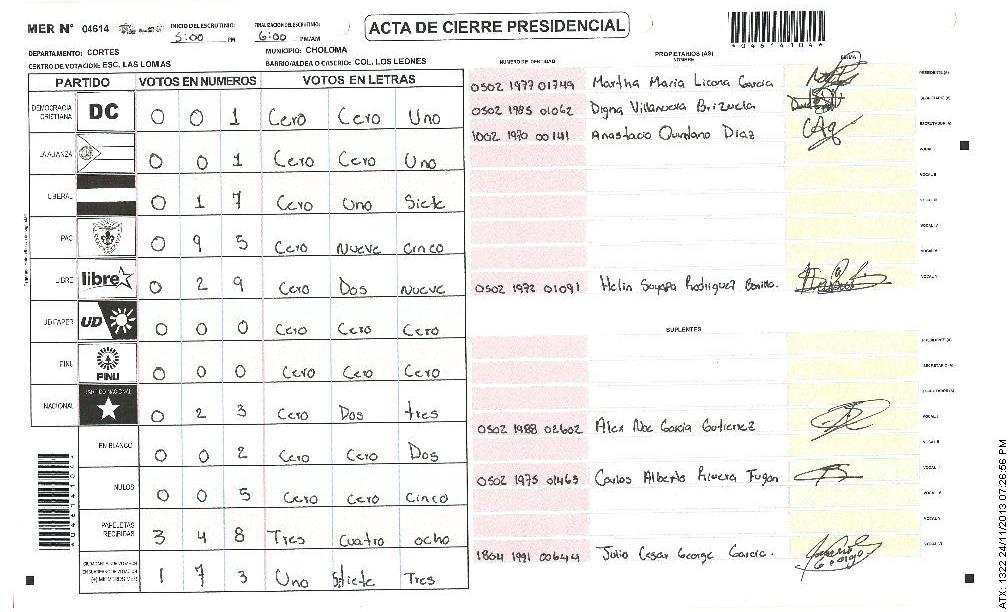 MER N° 04614
INICIO DEL ESCRUTINIO: 5:00 PM
FINALIZACION DEL ESCRUTINIO: 6:00 PM/AM
ACTA DE CIERRE PRESIDENCIAL
DEPARTAMENTO: CORTES
MUNICIPIO: CHOLOMA
CENTRO DE VOTACION: ESC. LAS LOMAS
BARRIO/ALDEA O CASERIO: COL. LOS LEONES
PARTIDO VOTOS EN NUMEROS VOTOS EN LETRAS
DEMOCRACIA CRISTIANA DC 0 0 1 Cero Cero Uno
LA ALIANZA 0 0 1 Cero Cero Uno
LIBERAL 0 1 7 Cero Uno Siete
PAC 0 9 5 Cero Nueve Cinco
LIBRE libre 0 2 9 Cero Dos Nueve
UD/FAPER UD 0 0 0 Cero Cero Cero
PINU PINU 0 0 0 Cero Cero Cero
NACIONAL PARTIDO NACIONAL 0 2 3 Cero Dos tres
EN BLANCO 0 0 2 Cero Cero Dos
NULOS 0 0 5 Cero Cero Cinco
PAPELETAS RECIBIDAS 3 4 8 Tres Cuatro ocho
(+) MIEMBROS MER 1 7 3 Uno Siete Tres
NUMERO DE IDENTIDAD
PROPIETARIOS (AS)
NOMBRE
FIRMA
0502 1977 01749 Martha Maria Licona Garcia PRESIDENTE (A)
0502 1985 01062 Digna Villanueva Brizuela SECRETARIO (A)
1002 1970 00141 Anastacio Quintano Diaz ESCRUTADOR (A)
VOCAL I
VOCAL II
VOCAL III
VOCAL IV
VOCAL V
0502 1972 01091 Helin Sayapa Rodriguez Bonilla. VOCAL VI
SUPLENTES
PRESIDENTE (A)
SECRETARIO (A)
ESCRUTADOR (A)
0502 1988 02602 Alex Noe Garcia Gutierrez VOCAL I
VOCAL II
0502 1975 01465 Carlos Alberto Rivera Fugon
VOCAL IV
VOCAL V
1804 1991 00644 Julio Cesar George Garcia. VOCAL VI
ATX: 1322 24/11/2013 07:26:56 PM